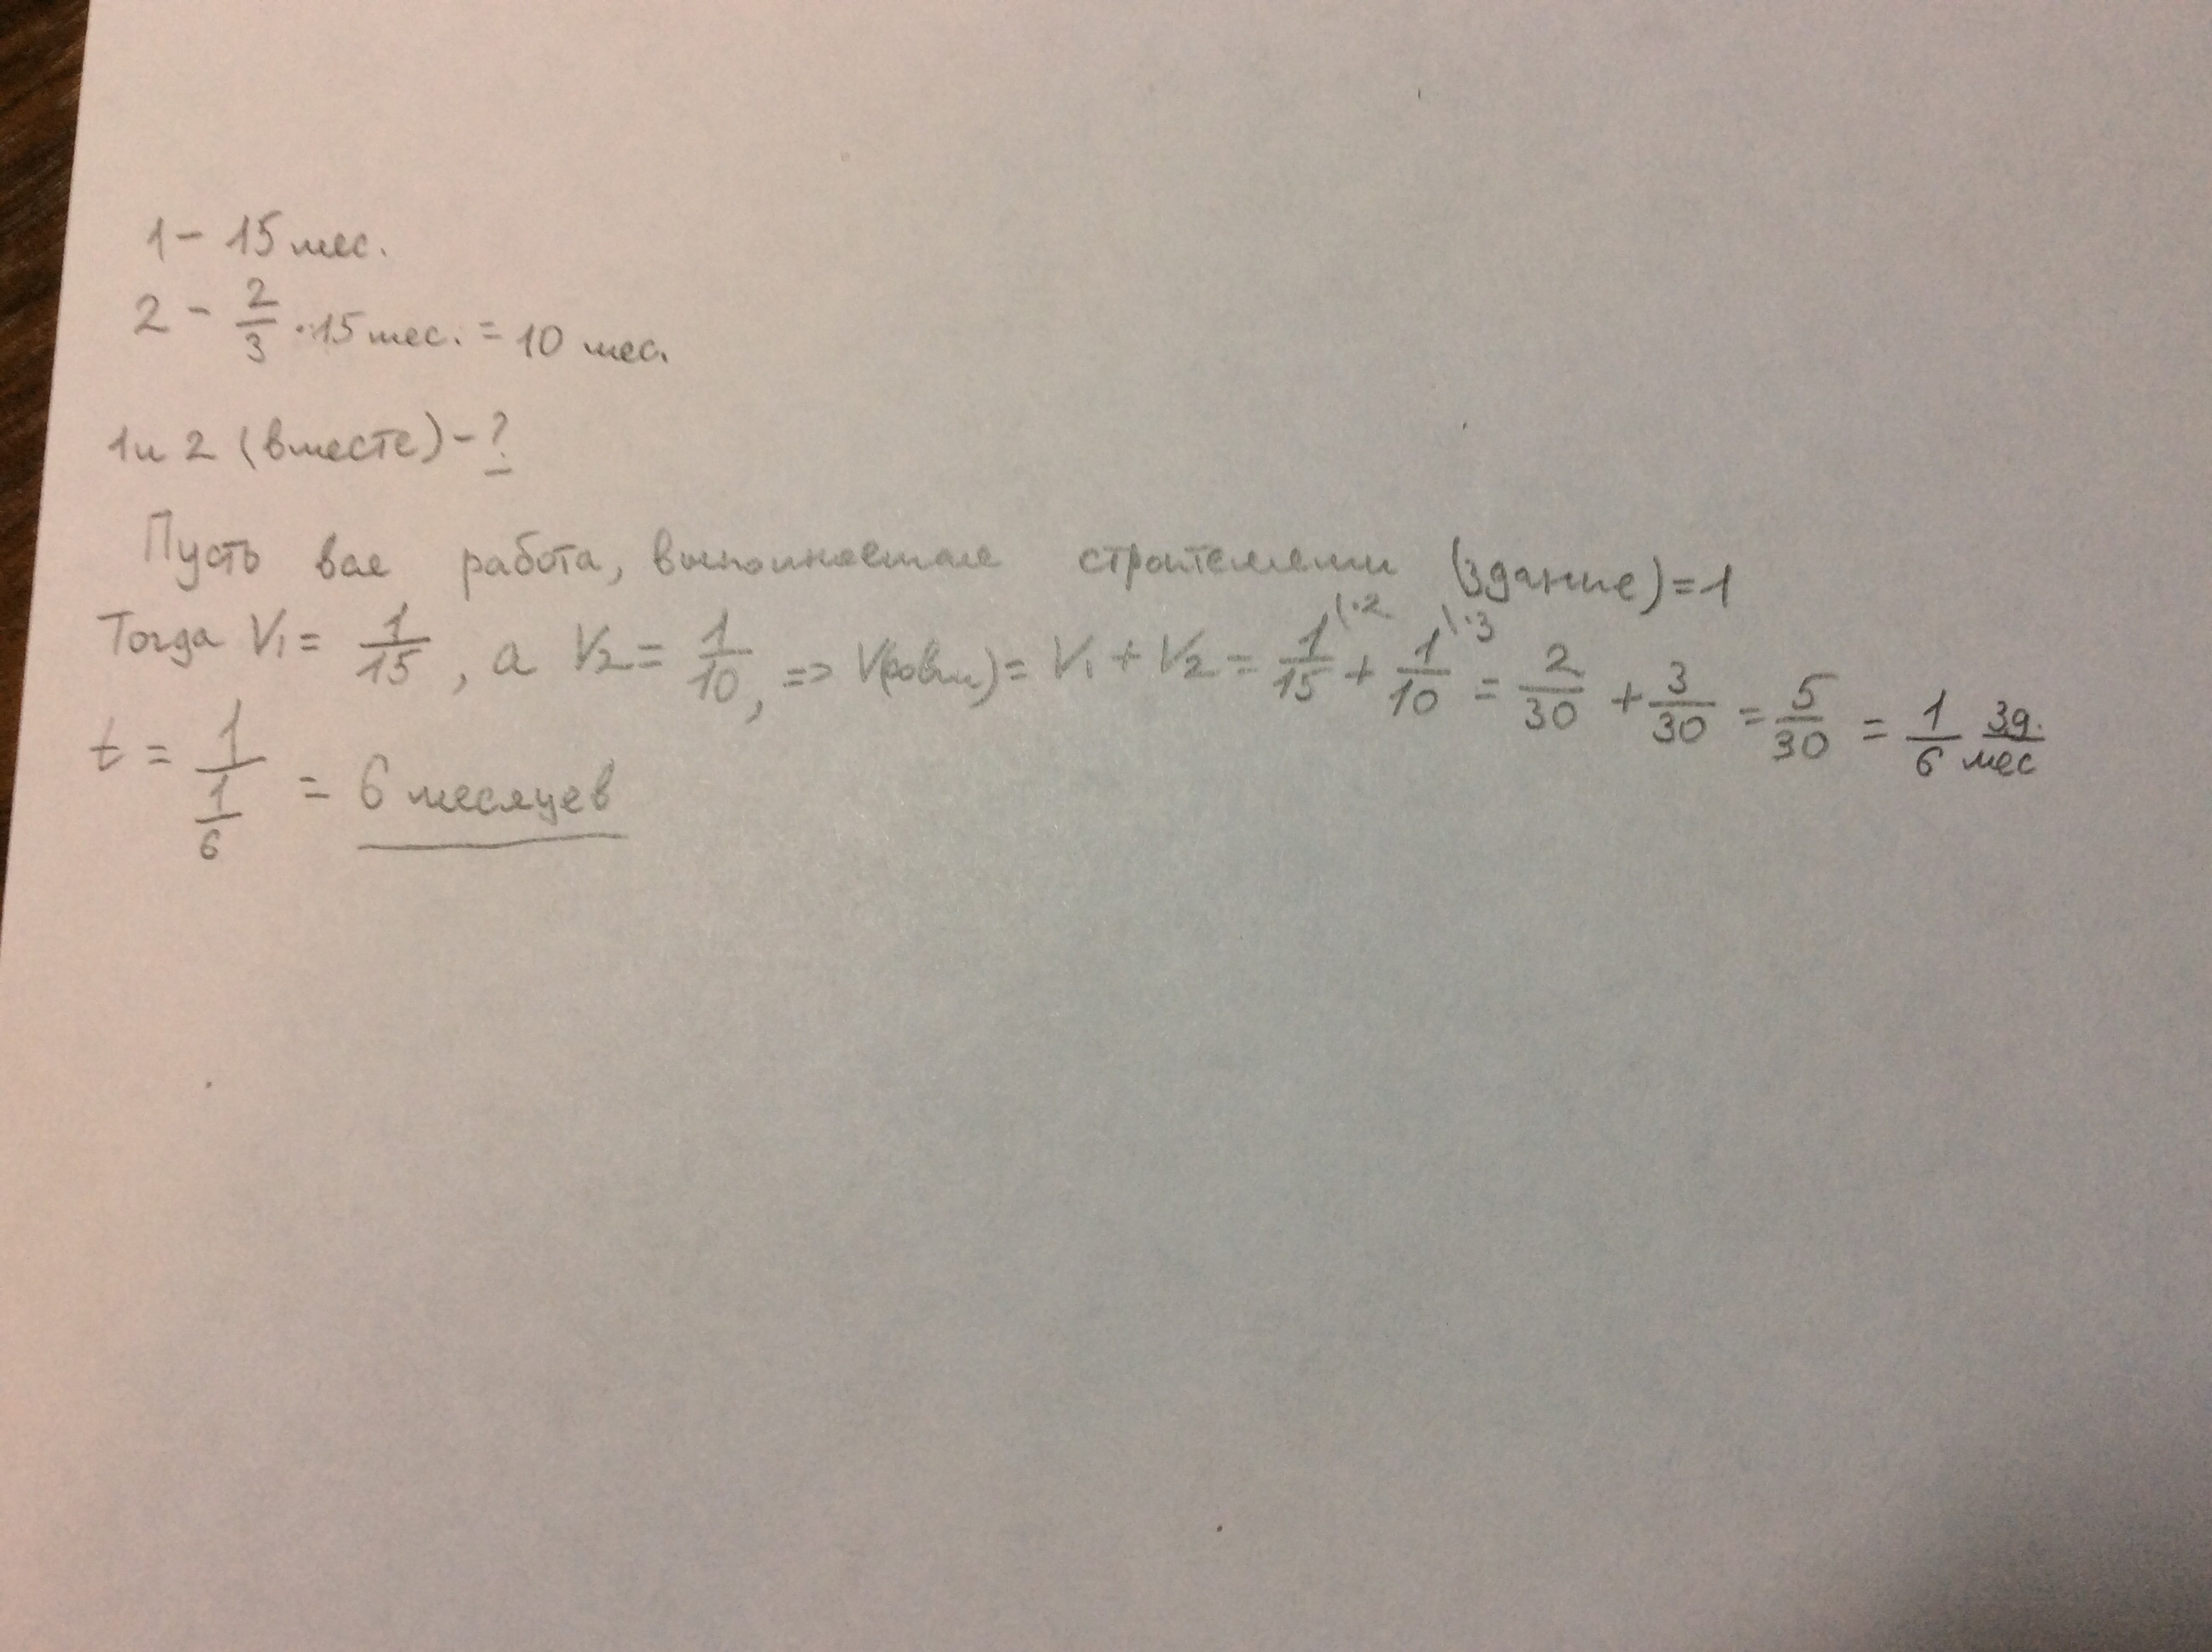 1 - 15 мес.
2 - 2/3 · 15 мес. = 10 мес.
1 и 2 (вместе) - ?
Пусть вся работа, выполняемая строителями (здание) = 1
Тогда V1 = 1/15, а V2 = 1/10, => V(совм) = V1 + V2 = 1/15 \·2 + 1/10 \·3 = 2/30 + 3/30 = 5/30 = 1/6 зд./мес
t = 1/(1/6) = 6 месяцев